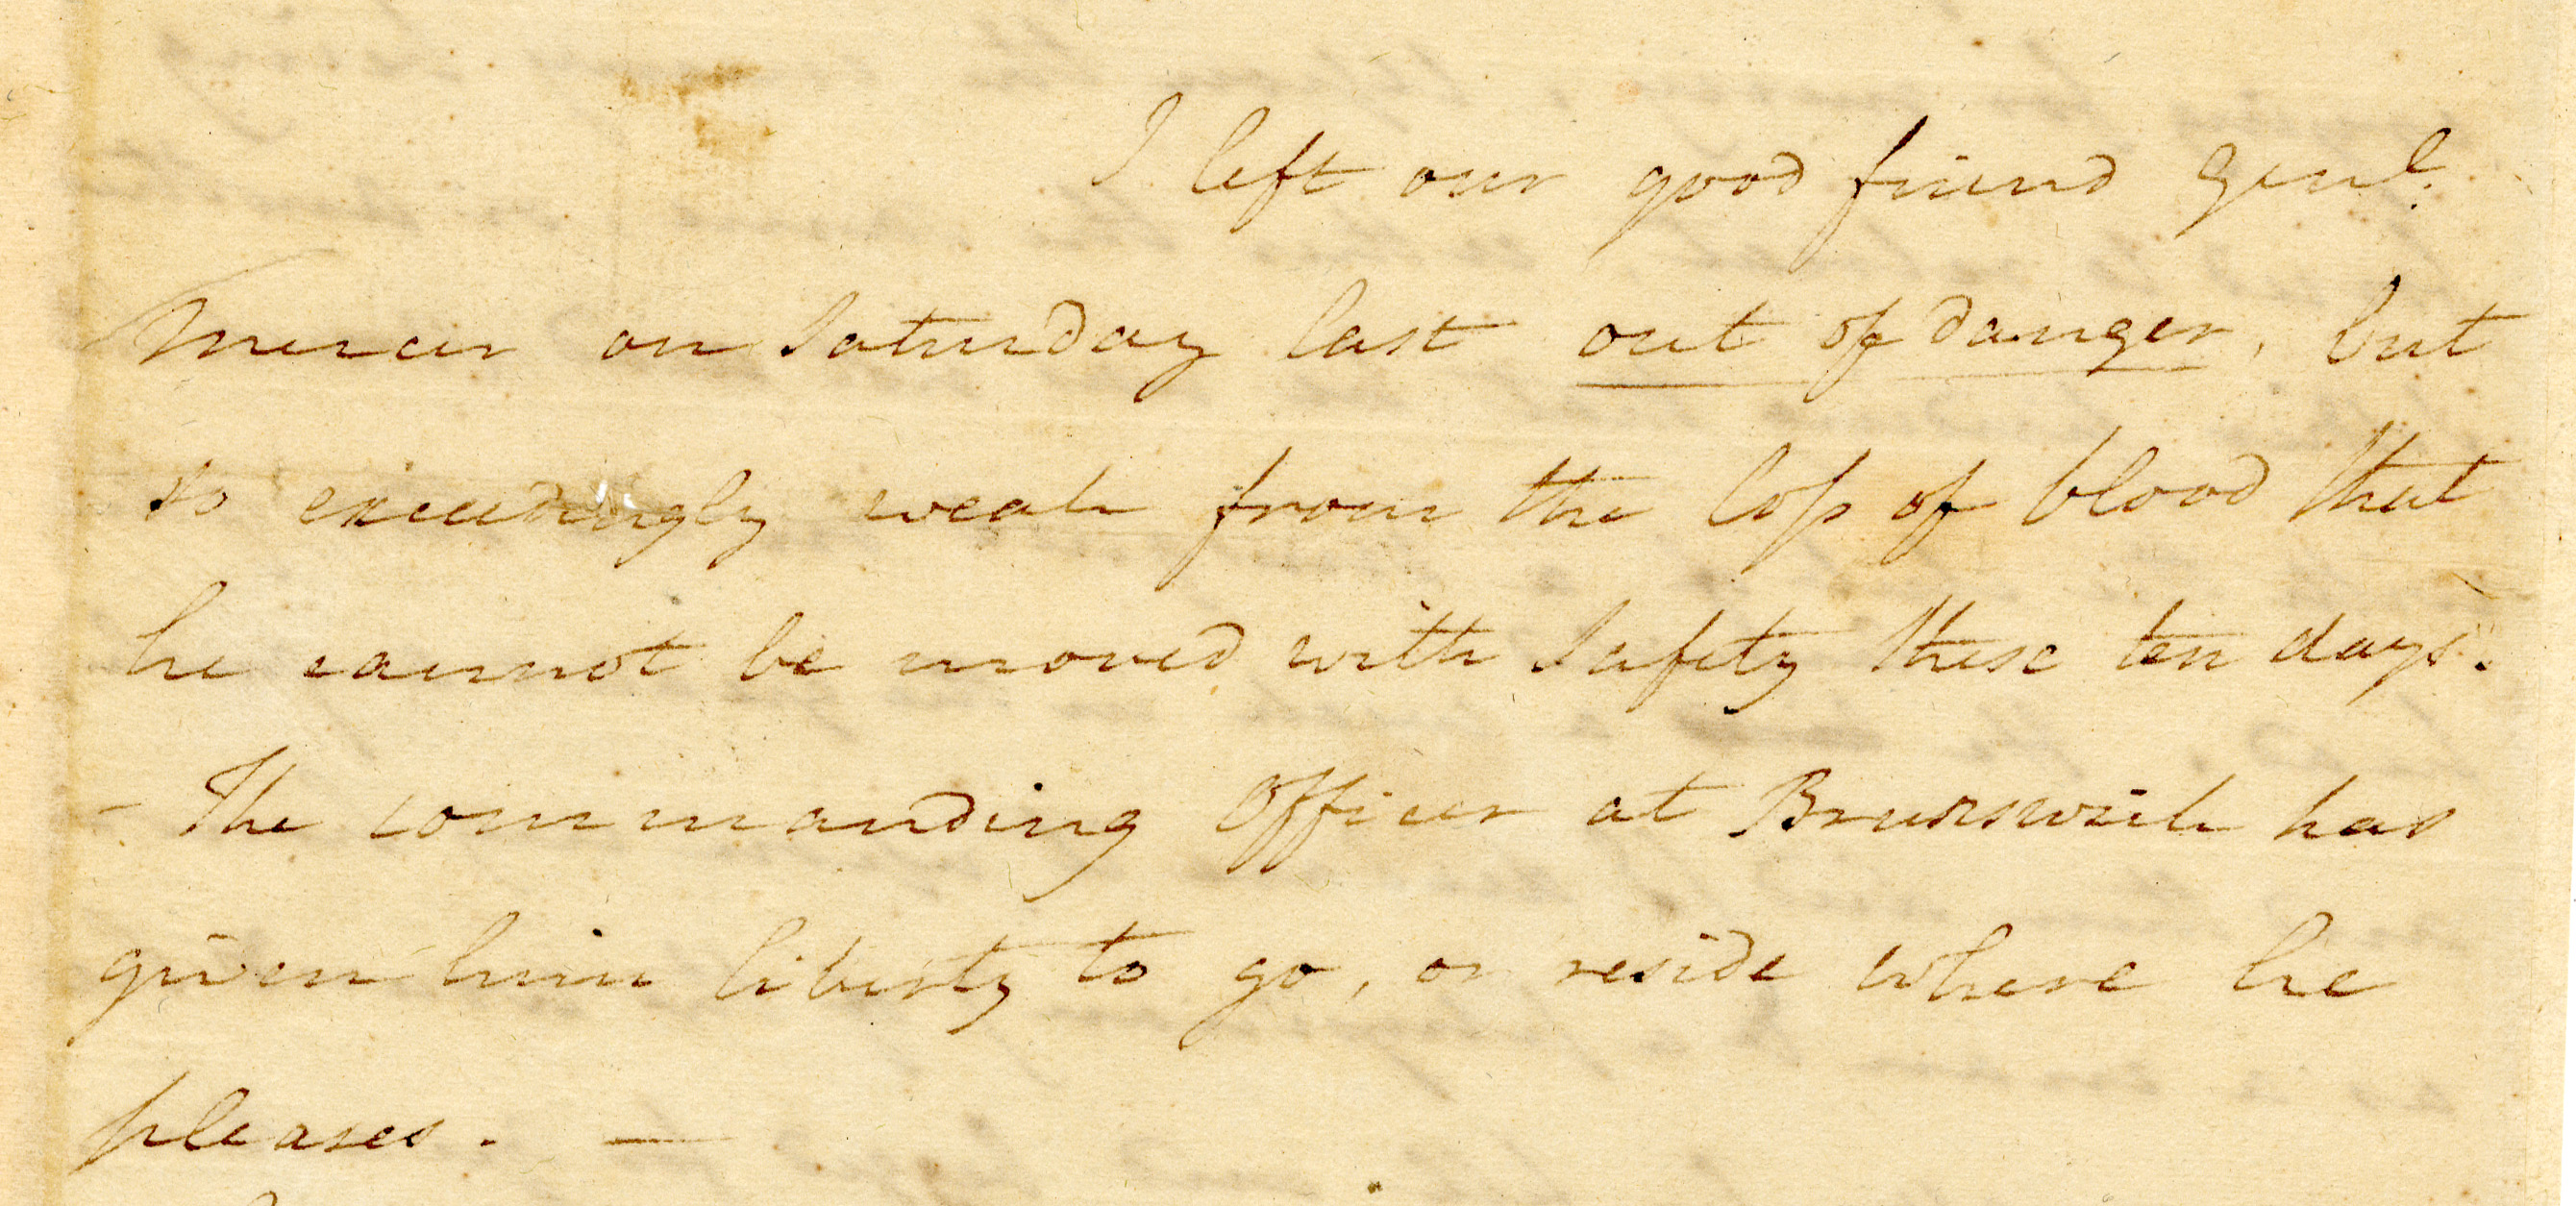 I left our good friend Genl.
Mercer on Saturday last out of danger, but
so exceedingly weak from the loss of blood that
he cannot be moved with safety these ten days.
- The commanding Officer at Brunswick has
given him liberty to go, or reside where he
pleases. —